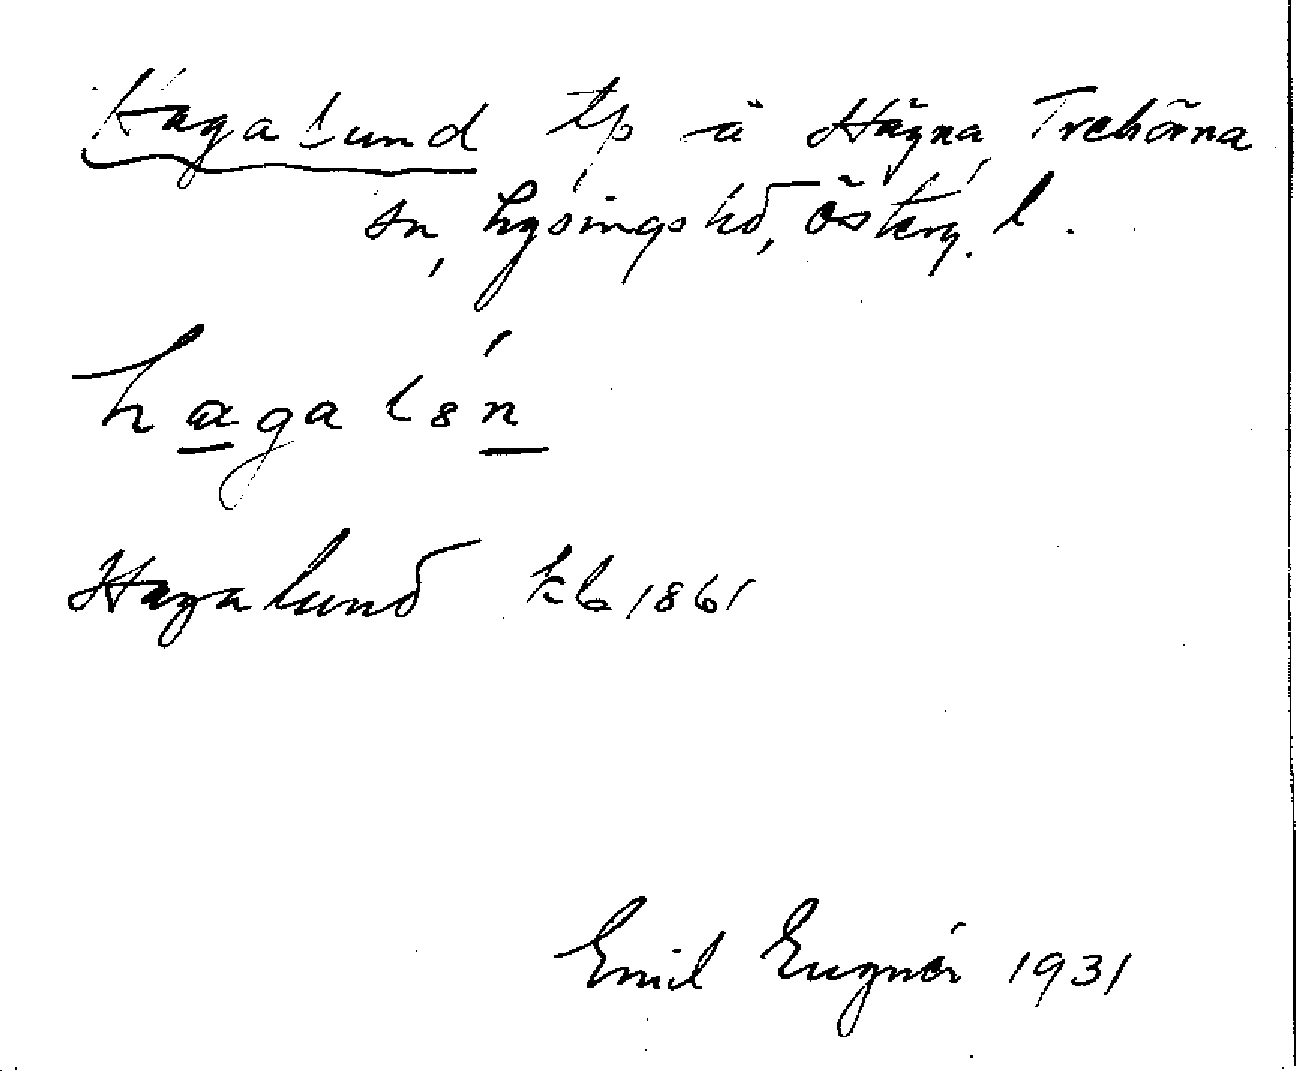 Hagalund tp å Hägna, Trehörna
sn, Lysings hd, Österg. l.
hagalsń
Hagalund kb 1861
Emil Eugnér 1931